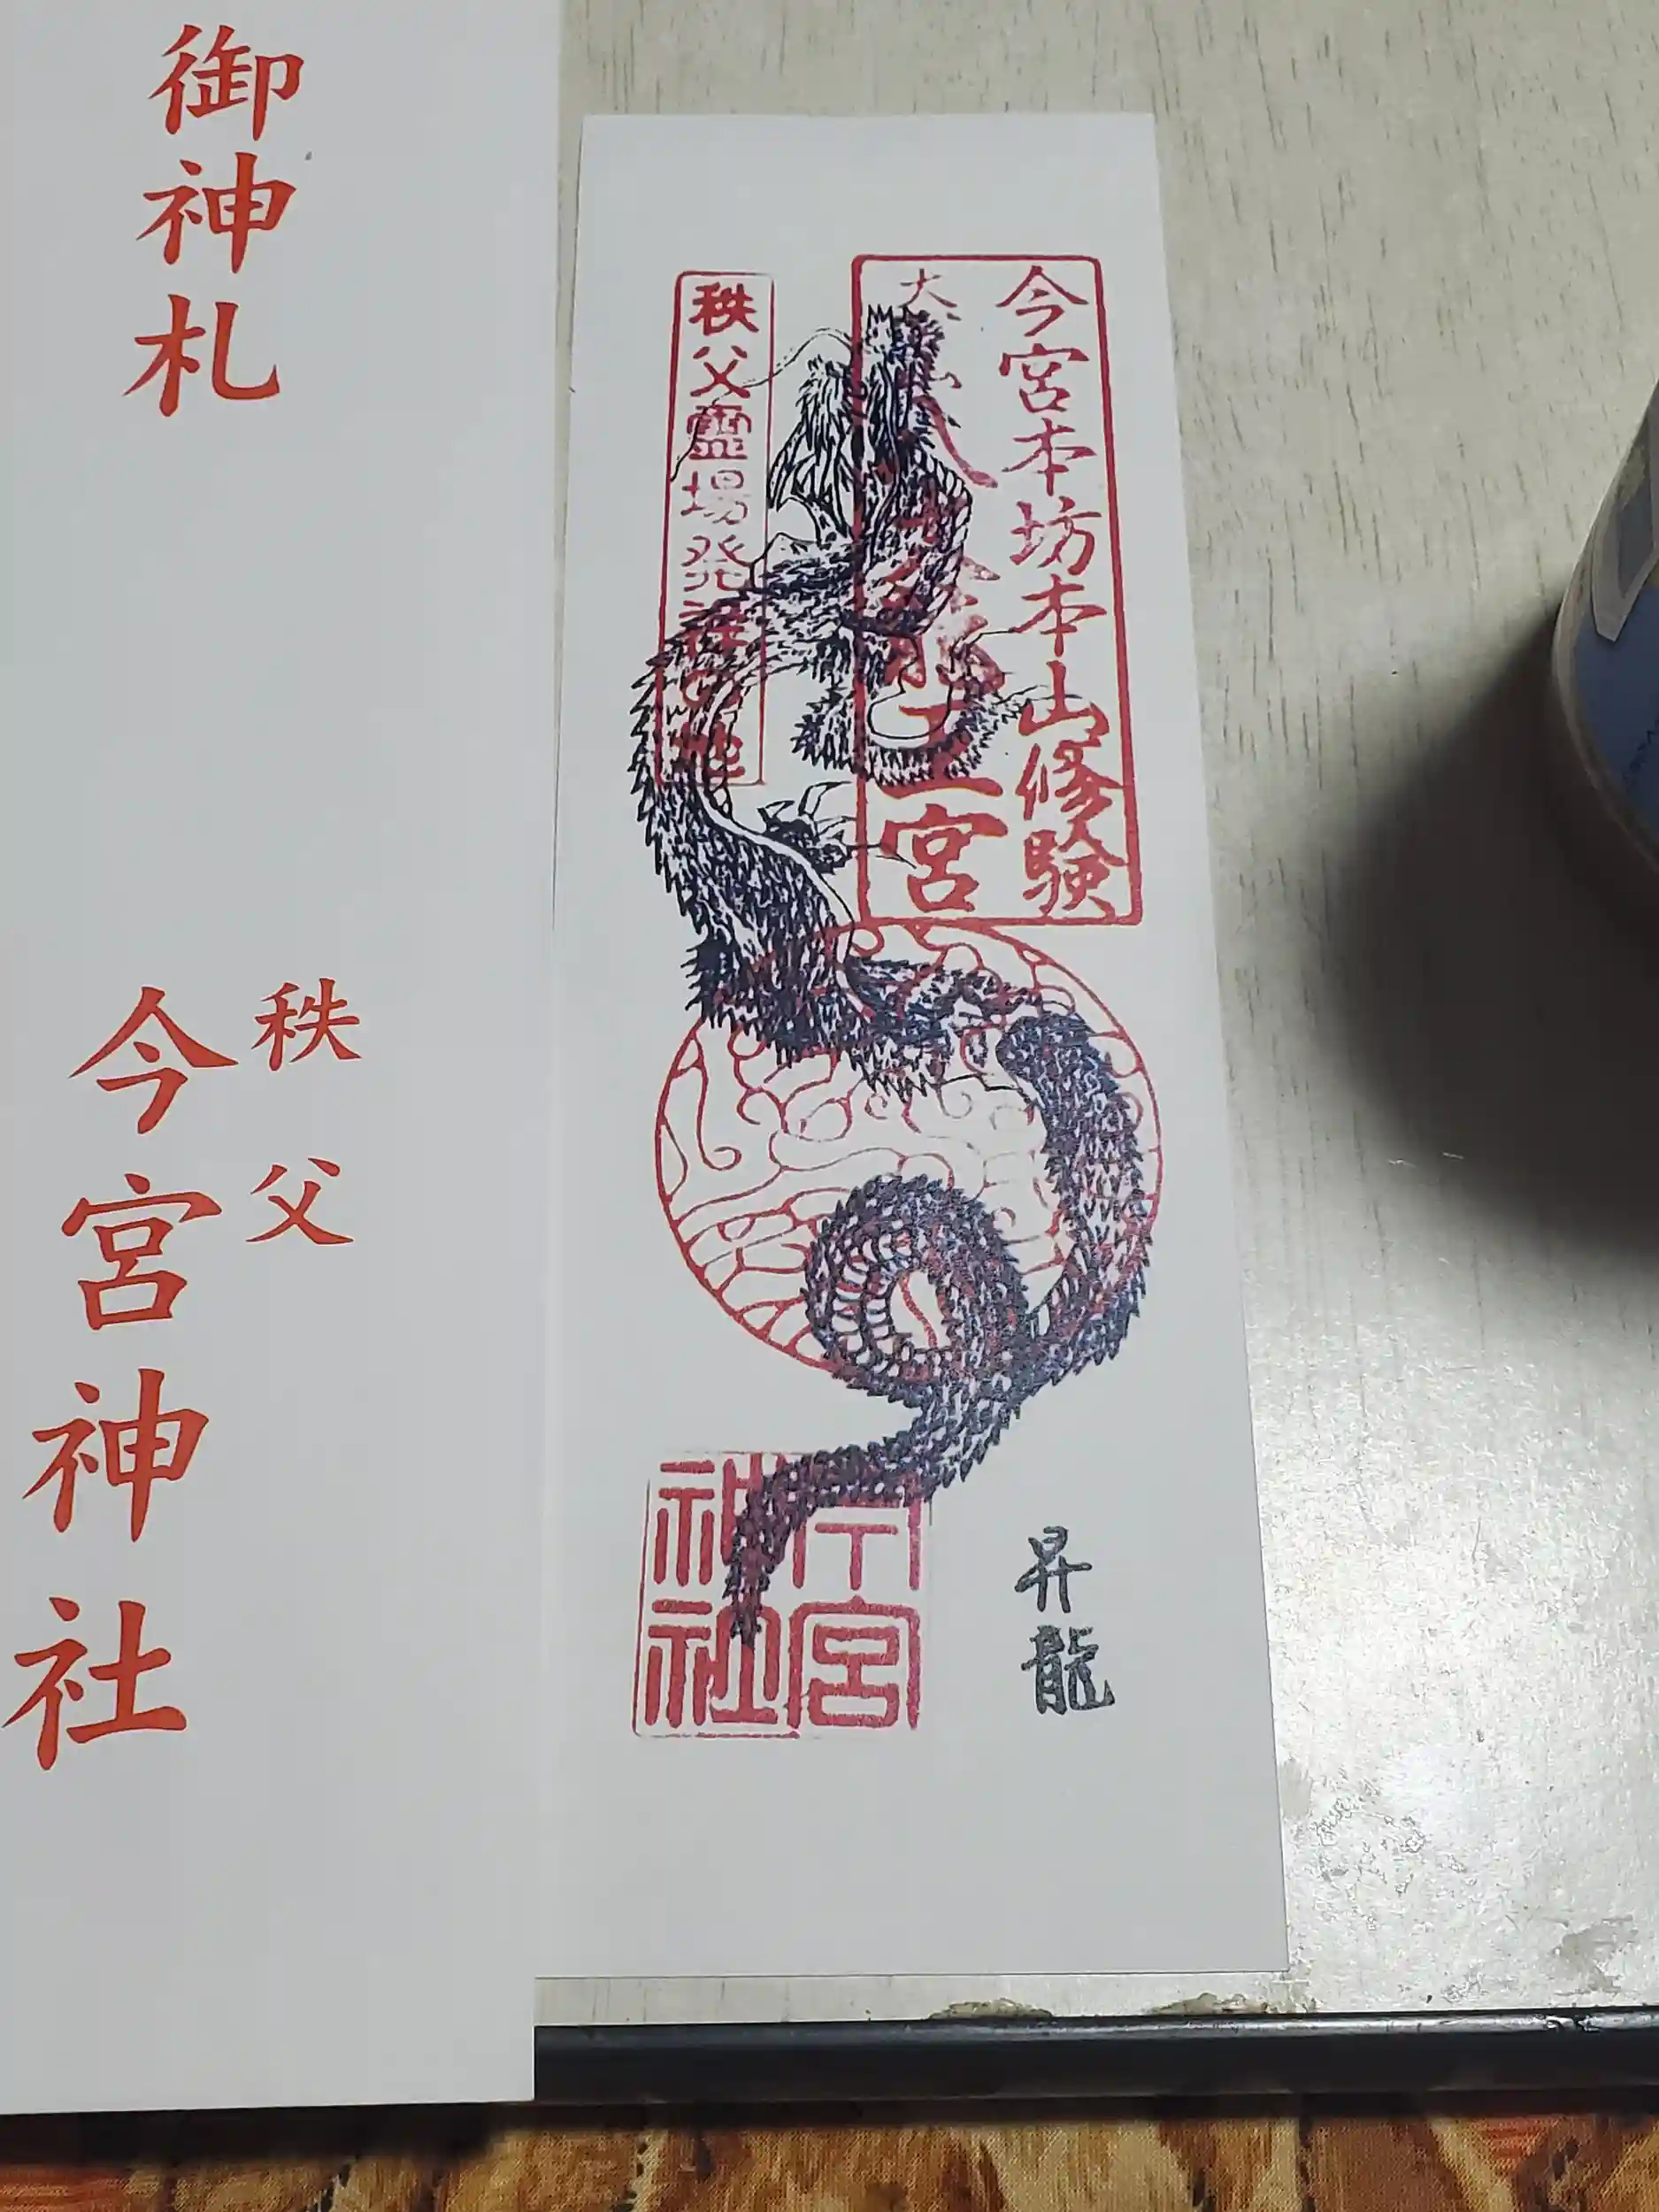 御神札
秩父
今宮神社
今宮本坊本山修験
大 八大龍王宮
秩父霊場発祥の地
今宮
神社
昇龍